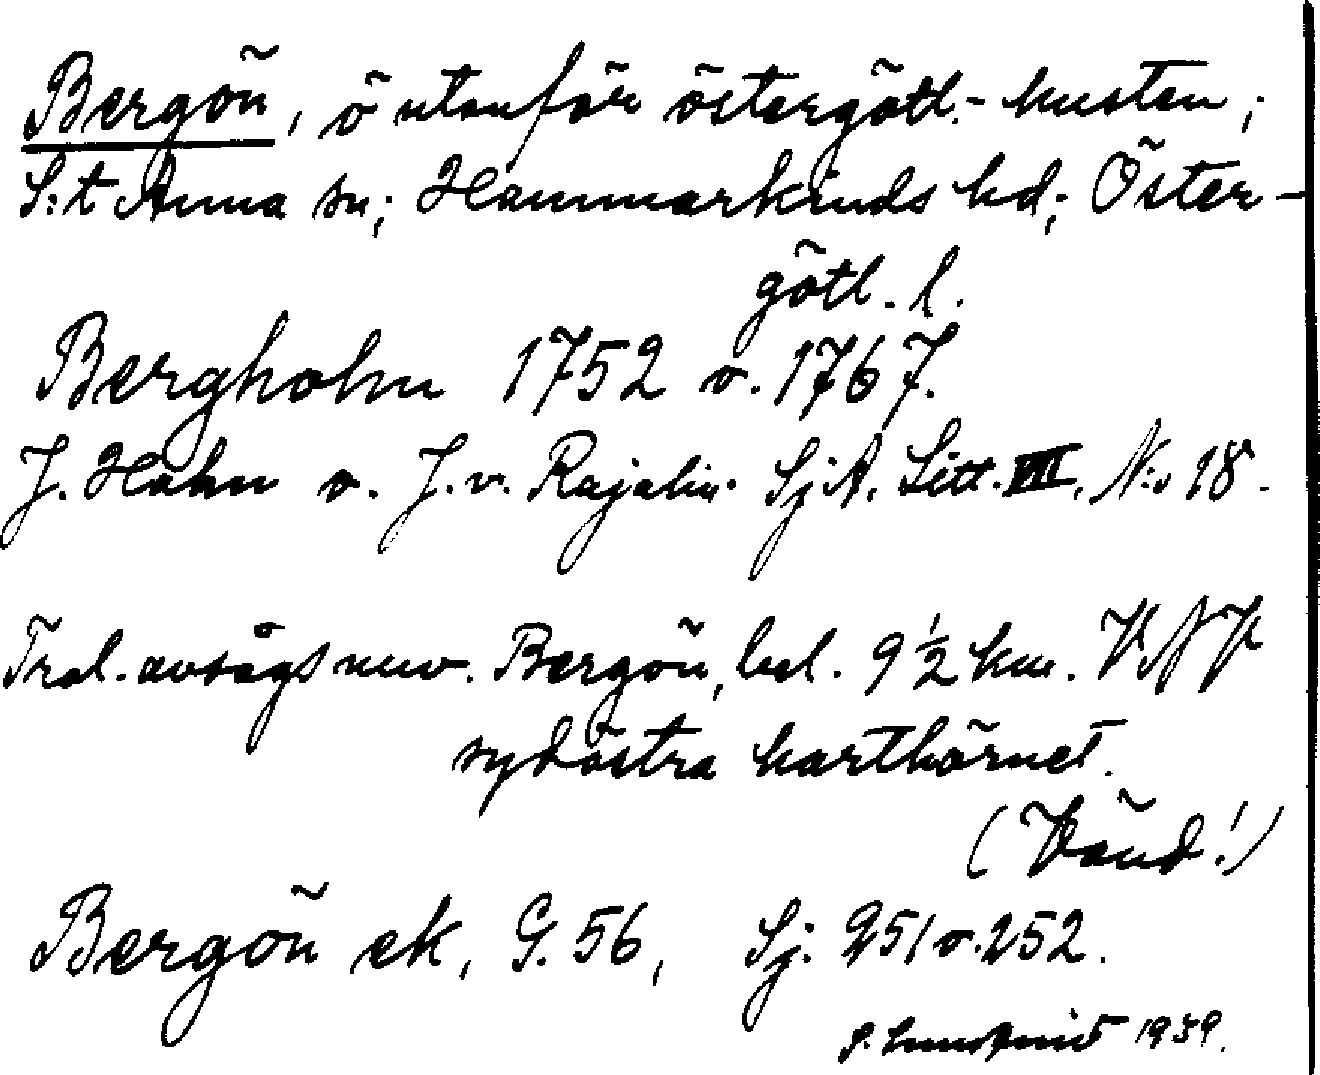 Bergön, ö utanför östergötl.- kusten;
S:t Anna sn; Hammarkinds hd; Öster-
götl. l.
Bergholm 1752 o. 1767.
J. Hahn o. J. v. Rajalin. SjA. Litt. VIII, N:o 18.
Trol. avsågs nuv. Bergön, bel. 9 1/2 km. VNV
sydöstra karthörnet.
(Vänd!)
Bergön ek, G. 56, Sj. 251 o. 252.
1939.